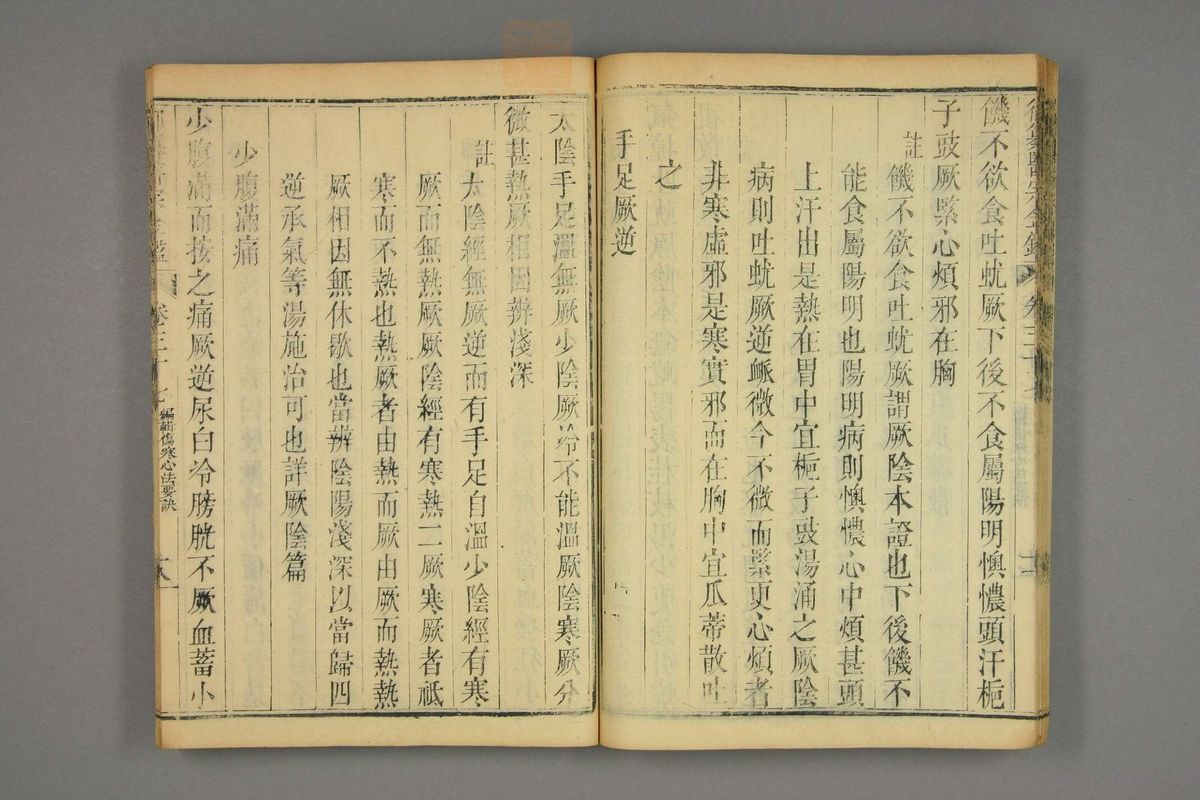 饑不欲食吐蚘厥下後不食屬陽明懊憹頭汗梔
子豉厥緊心煩邪在胸
註
饑不欲食吐蚘厥謂厥陰本證也下後饑不
能食屬陽明也陽明病則懊憹心中煩甚頭
上汗出是熱在胃中宜梔子豉湯涌之厥陰
病則吐蚘厥逆脈微今不微而緊更心煩者
非寒虛邪是寒實邪而在胸中宜瓜蒂散吐
之
手足厥逆
太陰手足溫無厥少陰厥冷不能溫厥陰寒厥分
微甚熱厥相因辨淺深
註
太陰經無厥逆而有手足自溫少陰經有寒
厥而無熱厥厥陰經有寒熱二厥寒厥者祗
寒而不熱也熱厥者由熱而厥由厥而熱熱
厥相因無休歇也當辨陰陽淺深以當歸四
逆承氣等湯施治可也詳厥陰篇
少腹滿痛
少腹滿而按之痛厥逆尿白冷膀胱不厥血蓄小
卷三十七
編輯傷寒心法要訣